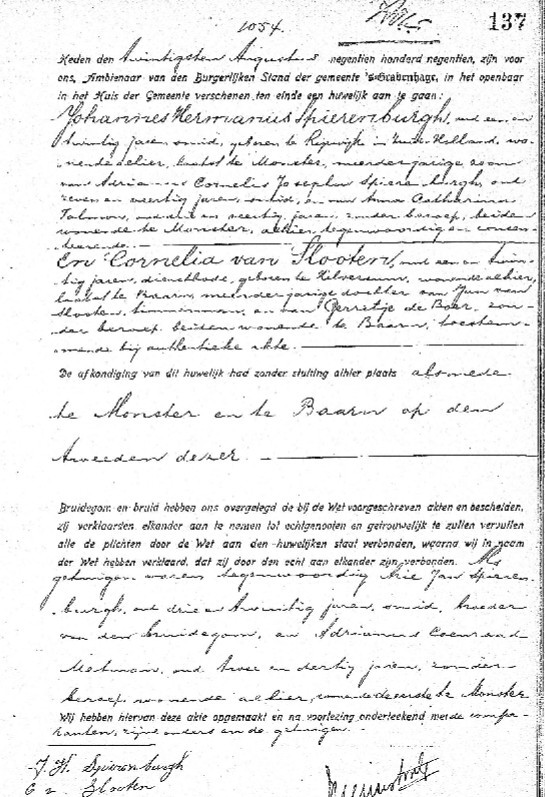 1054.
137
Heden den twintigsten Augustus negentien honderd negentien, zijn voor
ons, Ambtenaar van den Burgerlijken Stand der gemeente 's-Gravenhage, in het openbaar
in het Huis der Gemeente verschenen ten einde een huwelijk aan te gaan:
Johannes Hermanus Spierenburgh, oud een en
twintig jaren, smid, geboren te Rijswijk in Zuid-Holland, wo-
nende alhier, laatst te Monster, meerderjarige zoon
van Adrianus Cornelis Josephus Spierenburgh, oud
zeven en veertig jaren, smid, en van Anna Catharina
oud drie en veertig jaren, zonder beroep, beiden
wonende te Monster, alhier tegenwoordig en consen-
teerende.
En Cornelia van Slooten, oud een en twin-
tig jaren, dienstbode, geboren te Hilversum, wonende alhier,
laatst te Baarn, meerderjarige dochter van Jan van
Slooten, timmerman, en van Gerretje de Boer, zon-
der beroep, beiden wonende te Baarn, toestem-
mende bij authentieke akte.
De afkondiging van dit huwelijk had zonder stuiting alhier plaats alsmede
te Monster en te Baarn op den
tweeden dezer.
Bruidegom en bruid hebben ons overgelegd de bij de Wet voorgeschreven akten en bescheiden,
zij verklaarden elkander aan te nemen tot echtgenooten en getrouwelijk te zullen vervullen
alle de plichten door de Wet aan den huwelijken staat verbonden, waarna wij in naam
der Wet hebben verklaard, dat zij door den echt aan elkander zijn verbonden. Als
getuigen waren tegenwoordig Arie Jan Spieren-
burgh, oud drie en twintig jaren, smid, broeder
van den bruidegom, en Adrianus Coenraad
oud twee en dertig jaren, zonder
beroep, wonende alhier, eerste te Monster
Wij hebben hiervan deze akte opgemaakt en na voorlezing onderteekend met de compa-
ranten, ouders en de getuigen.
J. H. Spierenburgh
C v Slooten